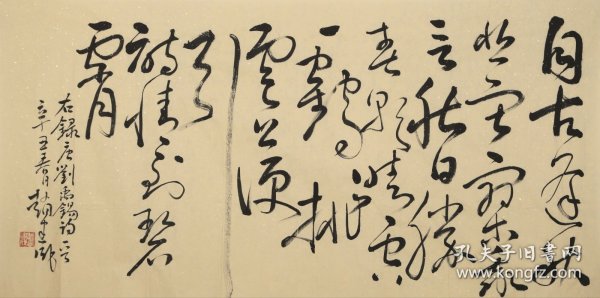 自古逢秋
悲寂寥我
言秋日勝
春朝晴空
一鶴排
雲上便
引
詩情到碧
霄
右錄唐劉禹錫詩一首
辛丑春月
孔夫子旧书网
www.kongfz.com